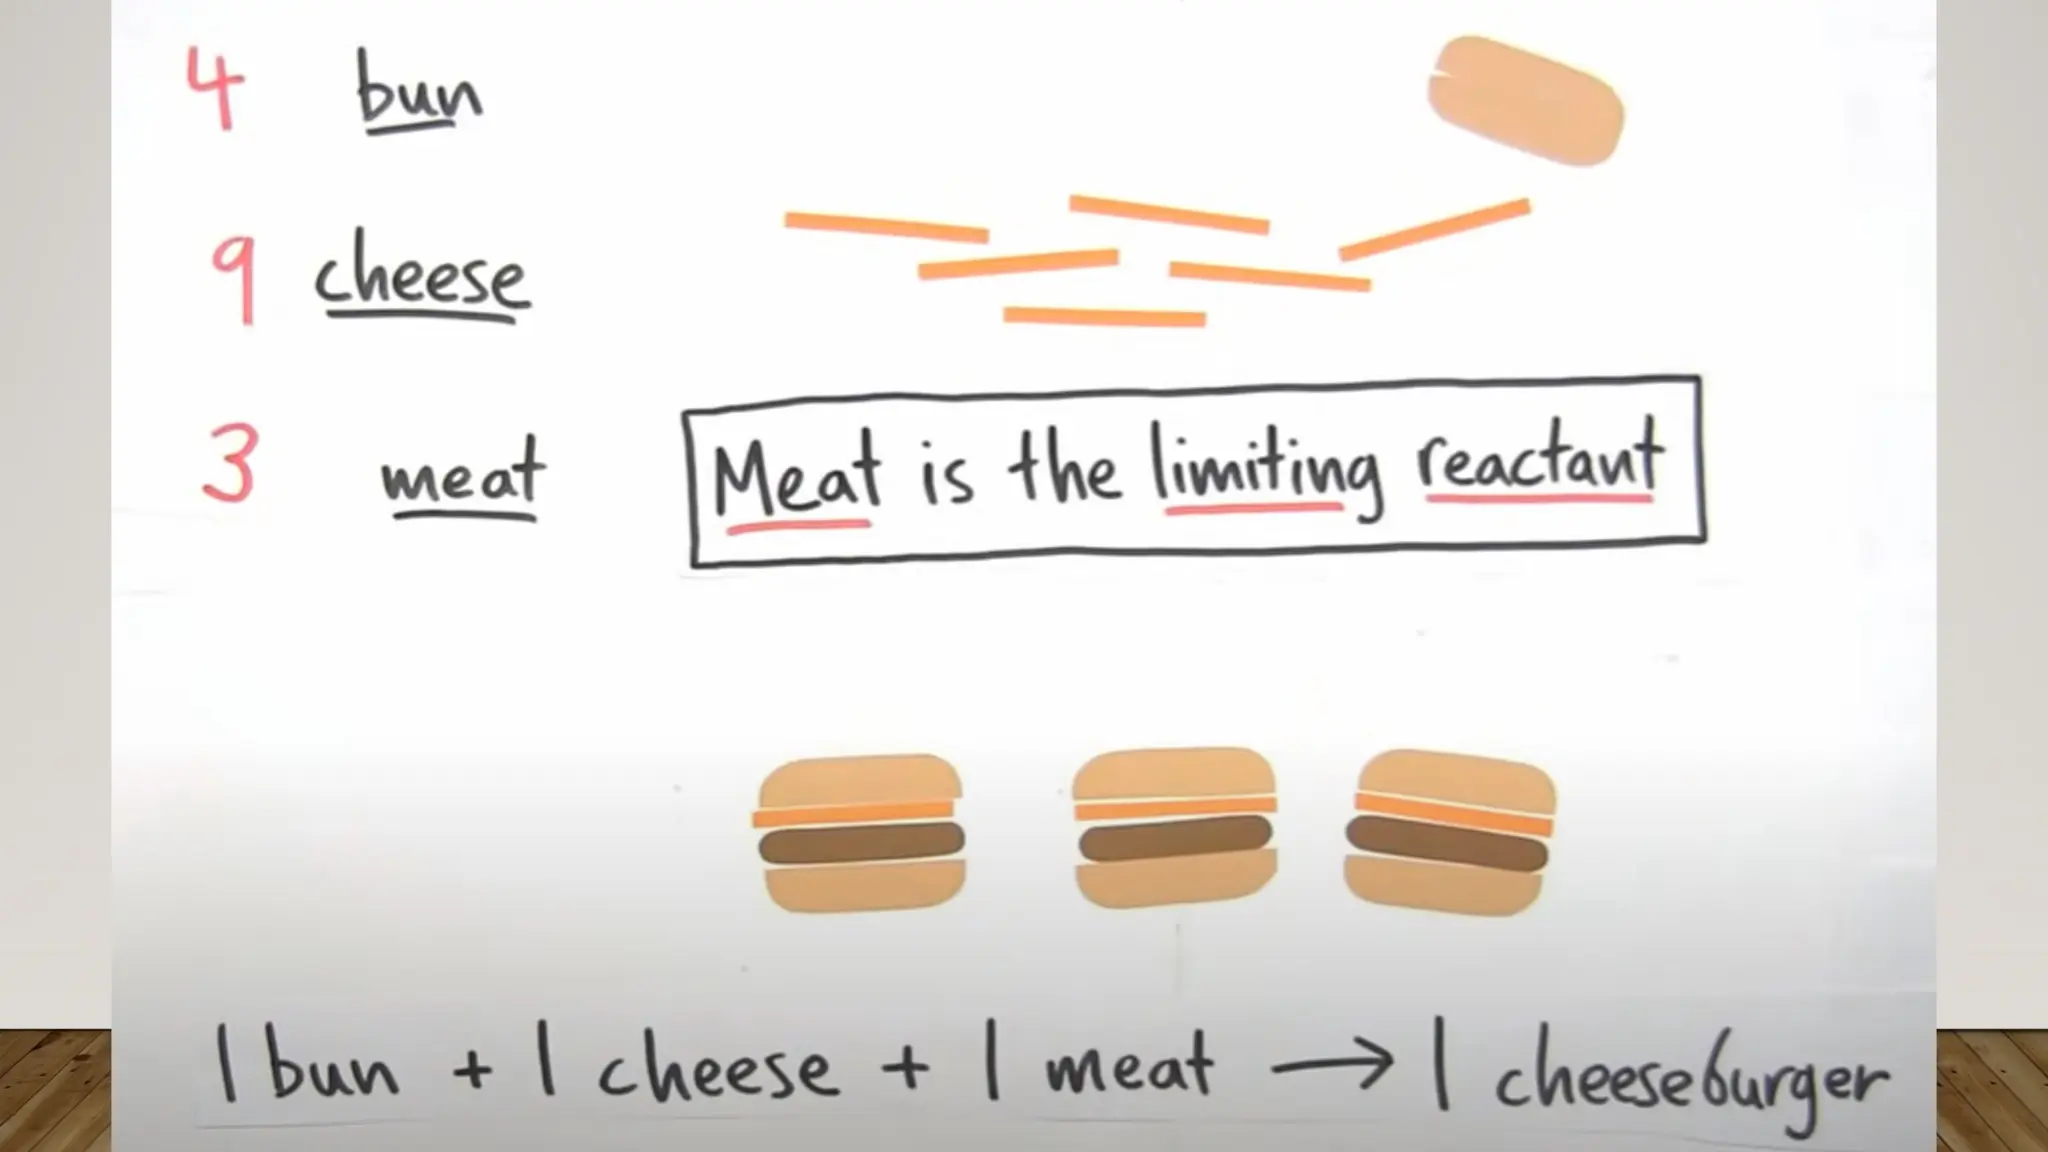 4 bun
9 cheese
3 meat
Meat is the limiting reactant
1 bun + 1 cheese + 1 meat → 1 cheeseburger